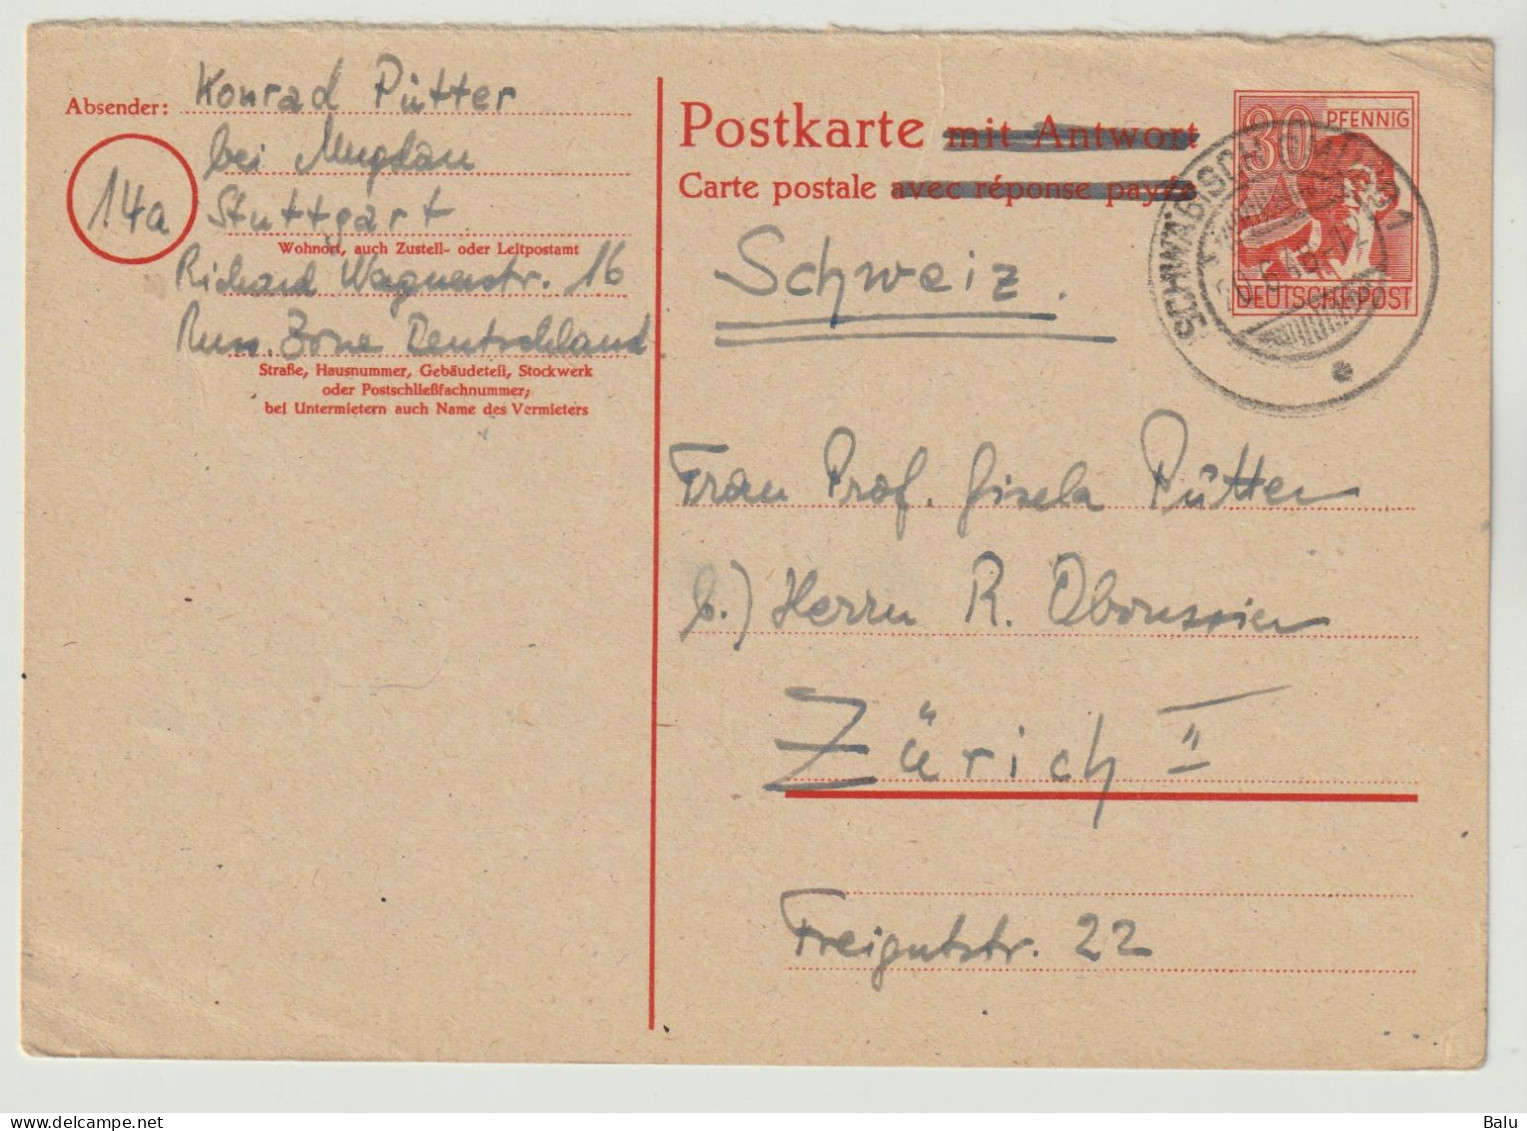 Absender: Konrad Pütter
bei Mugdan
14a Stuttgart
Wohnort, auch Zustell- oder Leitpostamt
Richard Wagnerstr. 16
Russ. Zone Deutschland
Straße, Hausnummer, Gebäudeteil, Stockwerk
oder Postschließfachnummer;
bei Untermietern auch Name des Vermieters
Postkarte mit Antwort
Carte postale avec réponse payée
30 PFENNIG
DEUTSCHE POST
SCHWÄBISCH
Schweiz.
Frau Prof. Gisela Pütter
b.) Herrn R. Oboussier
Zürich II
Freigutstr. 22
Balu